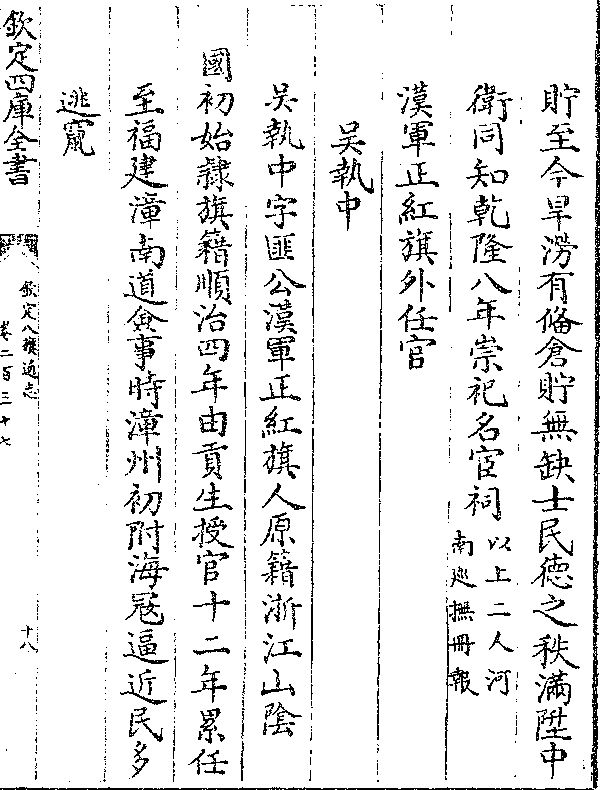 貯至今旱澇有備倉貯無缺士民德之秩滿陞中
衛同知乾隆八年崇祀名宦祠以上二人河
南巡撫冊報
漢軍正紅旗外任官
吳執中
吳執中字匪公漢軍正紅旗人原籍浙江山陰
國初始隸旗籍順治四年由貢生授官十二年累任
至福建漳南道僉事時漳州初附海寇逼近民多
逃竄
欽定四庫全書
欽定八旗通志
卷二百三十七
十八